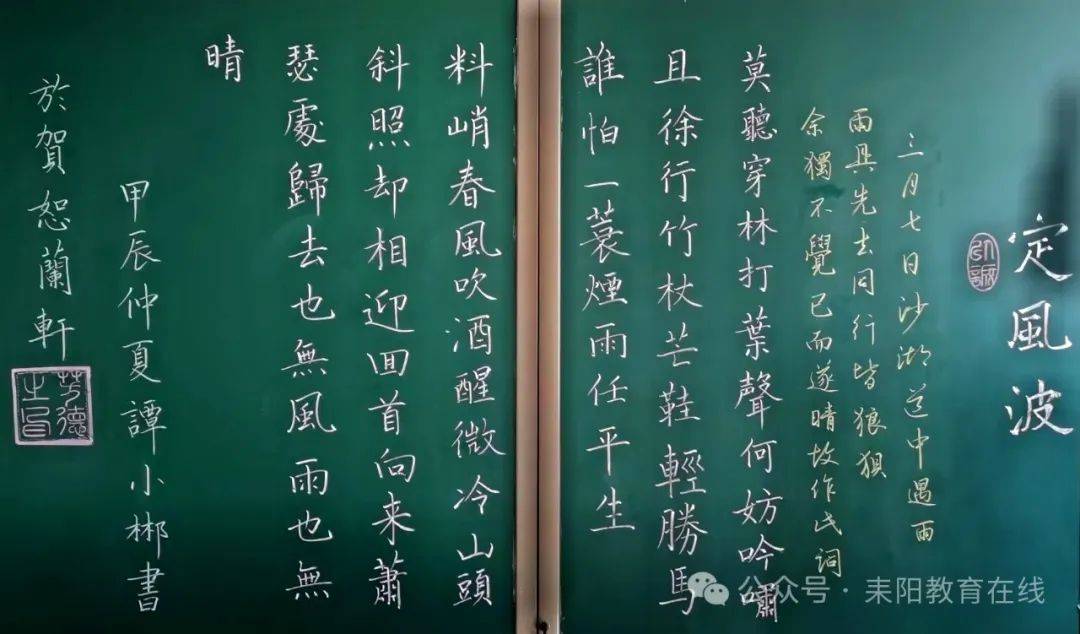 定風波
三月七日沙湖道中遇雨
雨具先去同行皆狼狽
余獨不覺已而遂晴故作此詞
莫聽穿林打葉聲何妨吟嘯
且徐行竹杖芒鞋輕勝馬
誰怕一蓑煙雨任平生
料峭春風吹酒醒微冷山頭
斜照却相迎回首向来蕭
瑟處歸去也無風雨也無
晴
甲辰仲夏譚小郴書
於賀恕蘭軒
公众号·耒阳教育在线